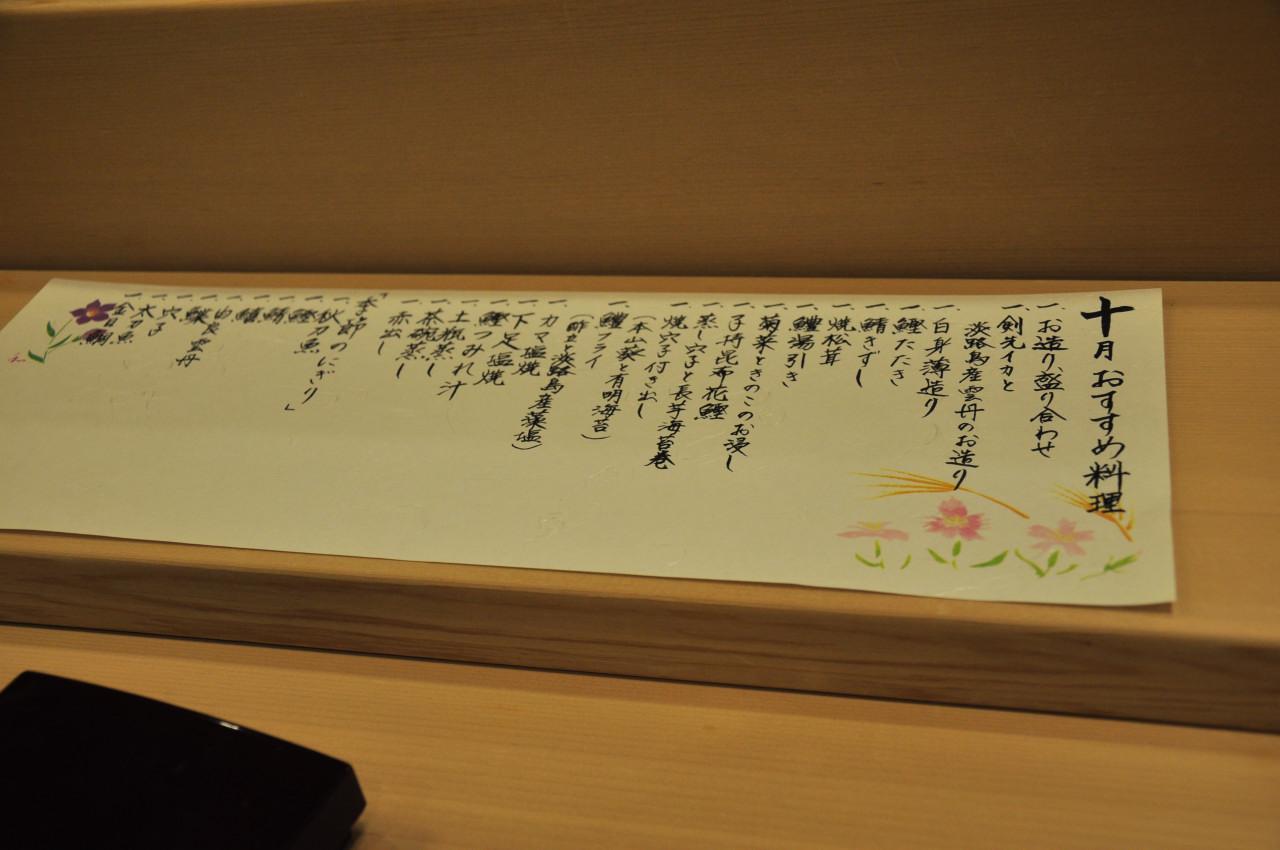 十月おすすめ料理
一、お造り盛り合わせ
一、剣先イカと
淡路島産雲丹のお造り
一、白身薄造り
一、鰹たたき
一、鯖きずし
一、焼松茸
一、鱧湯引き
一、菊菜ときのこのお浸し
一、子持昆布花鰹
一、蒸し穴子と長芋海苔巻
一、焼穴子付き出し
(本山葵と有明海苔)
一、鱧フライ
(酢と淡路島産藻塩)
一、カマ塩焼
一、下足塩焼
一、鰹つみれ汁
一、土瓶蒸し
一、茶碗蒸し
一、赤出し
「季節のにぎり」
一、秋刀魚
一、鰹
一、鯖
一、鰆
一、由良雲丹
一、穴子
一、太刀魚
一、金目鯛